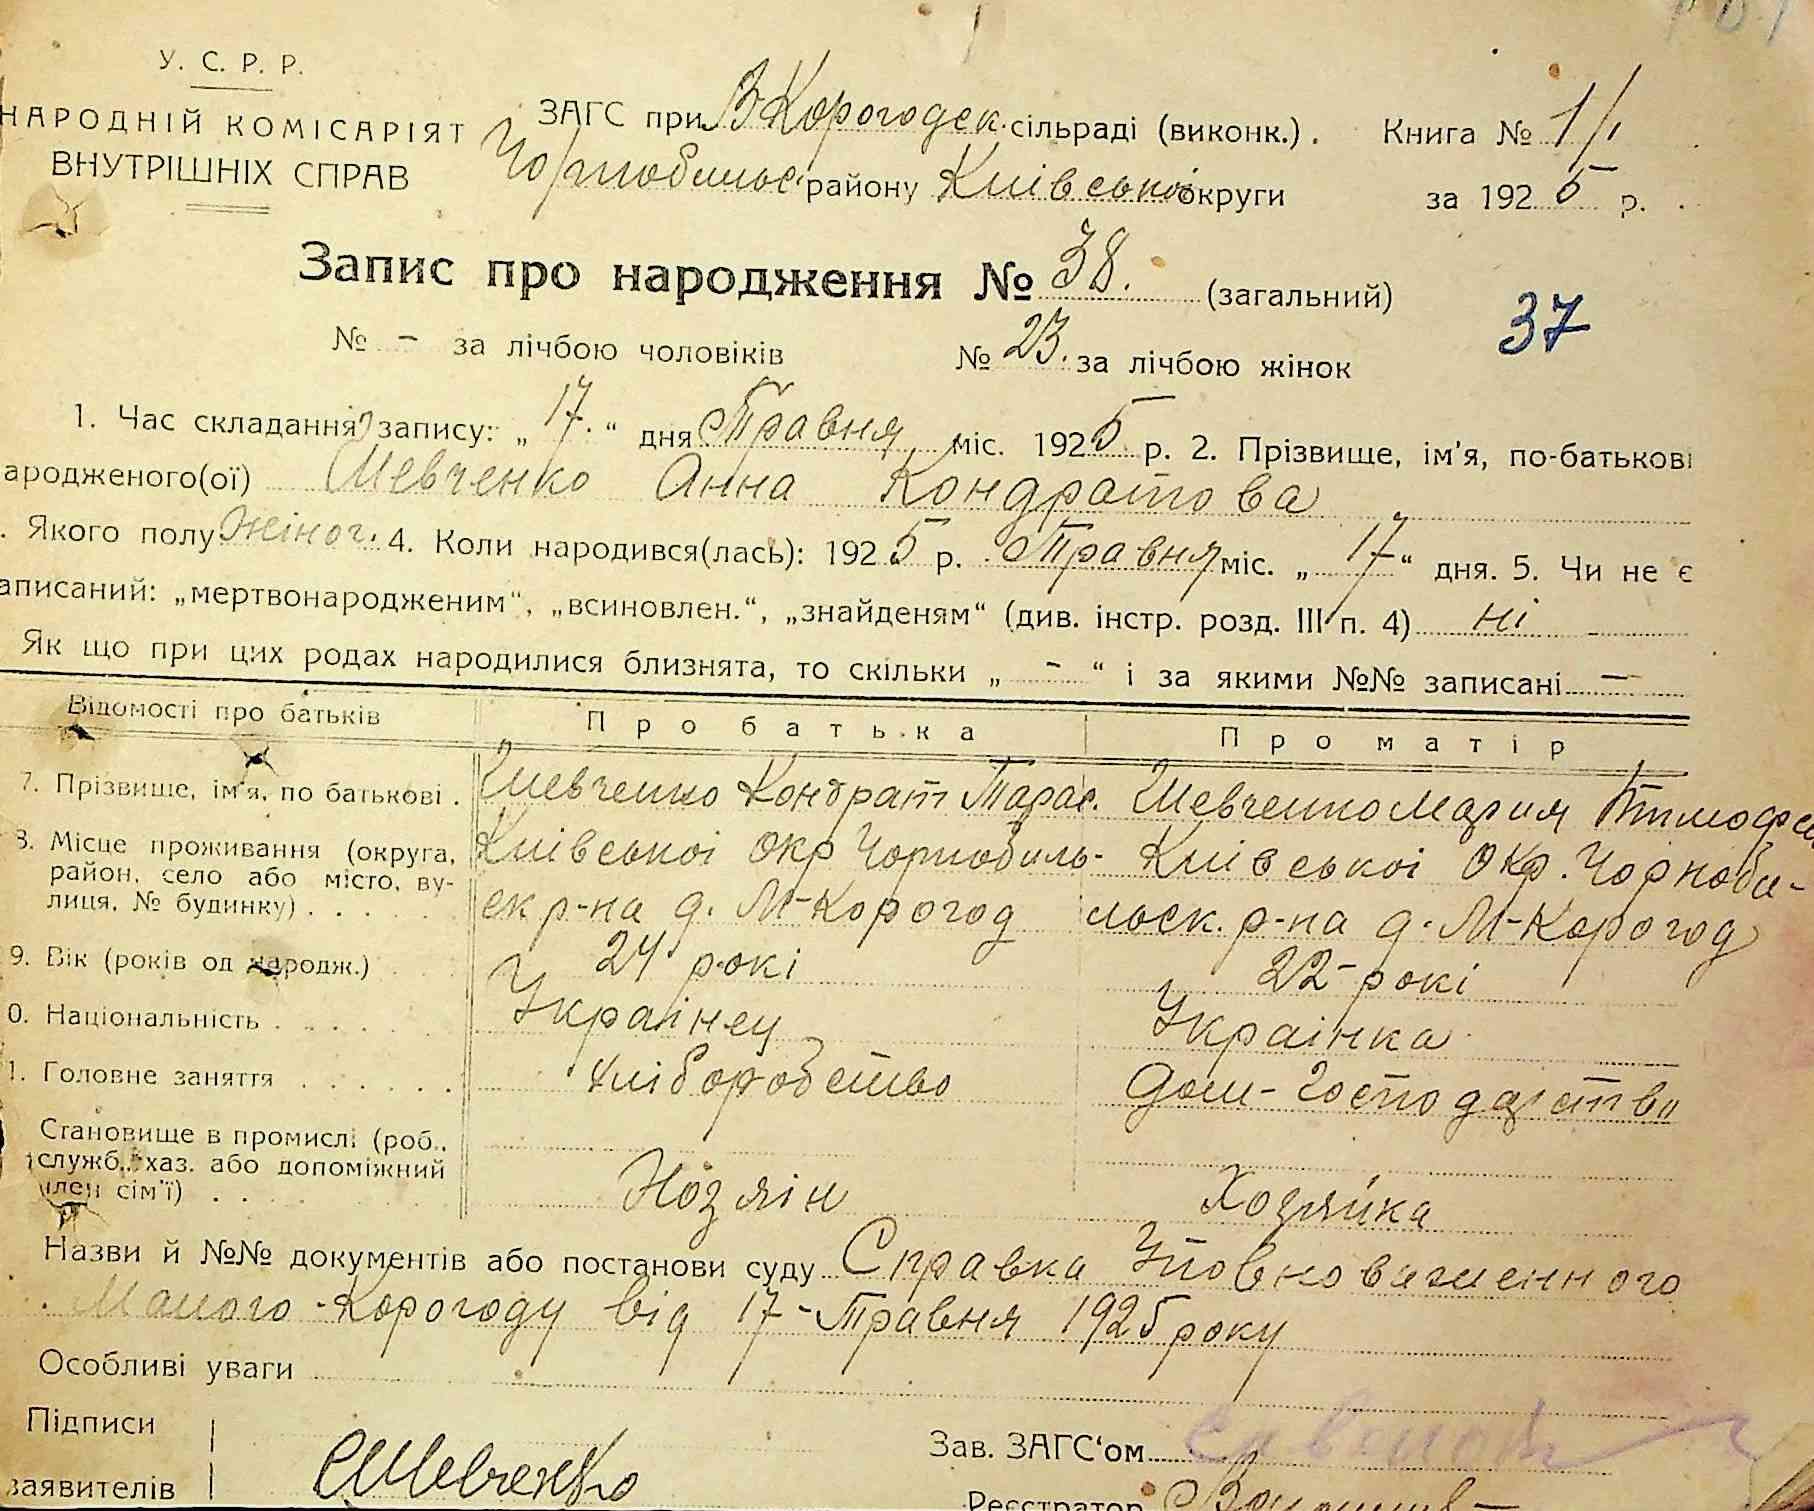 У. С. Р. Р.
НАРОДНІЙ КОМІСАРІЯТ
ВНУТРІШНІХ СПРАВ
ЗАГС при В Корогодск. сільраді (виконк.). Книга № 1/1
Чорнобильс. району Київської округи за 1925 р.
Запис про народження № 38. (загальний)
37
№ – за лічбою чоловіків № 23. за лічбою жінок
1. Час складання запису: „17.“ дня Травня міс. 1925 р. 2. Прізвище, ім'я, по-батькові
ародженого(ої) Шевченко Анна Кондратова
. Якого полу Жіноч. 4. Коли народився(лась): 1925 р. Травня міс. „17“ дня. 5. Чи не є
аписаний: „мертвонародженим“, „всиновлен.“, „знайденям“ (див. інстр. розд. III п. 4) ні
Як що при цих родах народилися близнята, то скільки „ – “ і за якими №№ записані –
Відомості про батьків Про батька Про матір
7. Прізвище, ім'я, по батькові . Шевченко Кондрат Тарас. Шевченко Мария Тимофе
8. Місце проживання (округа, район, село або місто, ву-лиця, № будинку) . . . . . Київської Окр Чорнобиль-ск р-на д. М-Корогод Київської Окр. Чорноби-льск. р-на д. М-Корогод
9. Вік (років од народж.) 24 рокі 22-рокі
0. Національність . . . . . . Українец Українка
1. Головне заняття . . . . . . Хліборобство Дом-Господарство
Становище в промислі (роб., служб., хаз. або допоміжний член сім'ї) . . . . Хозяін Хозяйка
Назви й №№ документів або постанови суду Справка Уповноваженного
Малого-Корогоду від 17-Травня 1925 року
Особливі уваги
Підписи
заявителів Шевченко
Зав. ЗАГС'ом
Реєстратор